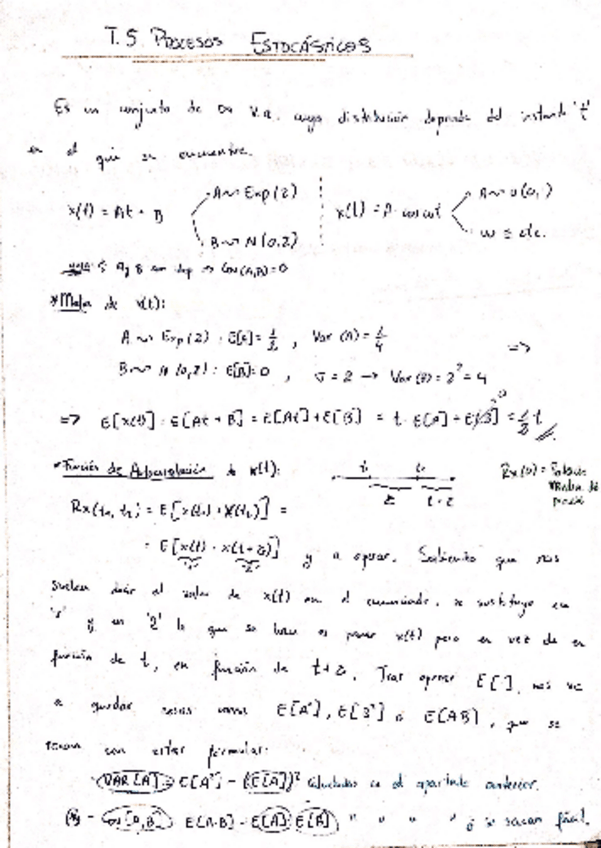 T.5 PROCESOS ESTOCÁSTICOS
Es un conjunto de V.A. cuya distribución depende del instante 't'
en el que se encuentre.
x(t) = At + B A ~ Exp(2) x(t) = A cos ωt A ~ U(0,1)
B ~ N(0,2) ω ≡ cte.
A y B son indep => Cov(A,B)=0
*Media de x(t):
A ~ Exp(2): E[A] = 1/2, Var(A) = 1/4 =>
B ~ N(0,2): E[B]=0, σ = 2 → Var(B) = 2² = 4
=> E[x(t)] = E[At + B] = E[At] + E[B] = t · E[A] + E[B] = 1/2 t
Función de Autocorrelación de x(t):
Rx(0) =
Media de
Rx(t₁, t₂) = E[x(t₁) · x(t₂)] =
= E[x(t) · x(t+z)] y a operar. Sabiendo que nos
suelen dar el valor de x(t) en el enunciado, se sustituye en
'1' y en '2' lo que se hace es poner x(t) pero en vez de en
función de t, en función de t+z. Tras operar E[·], nos va
a quedar cosas como E[A²], E[B²] o E[AB], que se
sacan con estas fórmulas:
VAR[A] = E[A²] - (E[A])² calculadas en el apartado anterior.
Cov[A,B] = E[A·B] - E[A] E[B] " " " " ó se sacan fácil.